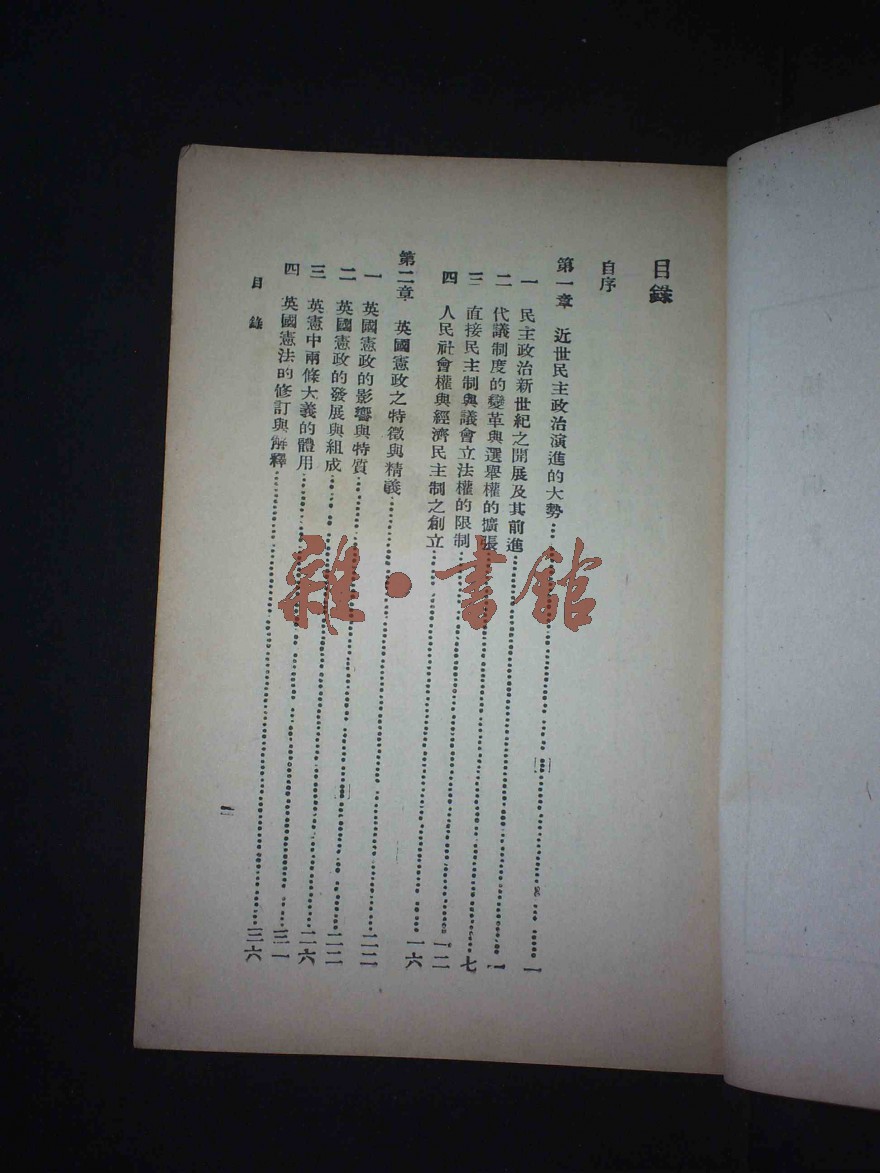 目錄
自序
第一章 近世民主政治演進的大勢……一
一 民主政治新世紀之開展及其前進……一
二 代議制度的變革與選舉權的擴張……七
三 直接民主制與議會立法權的限制……一二
四 人民社會權與經濟民主制之創立……一六
第二章 英國憲政之特徵與精義……二二
一 英國憲政的影響與特質……二二
二 英國憲政的發展與組成……二六
三 英憲中兩條大義的體用……三一
四 英國憲法的修訂與解釋……三六
目錄
雜·書館